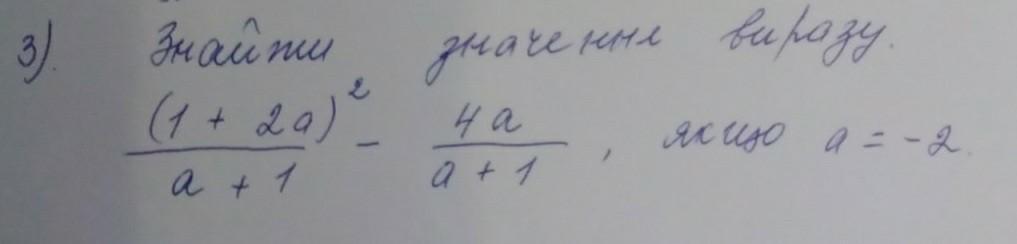 3). Знайти значення виразу.
(1 + 2a)² / a + 1 - 4a / a + 1 , якщо a = -2.